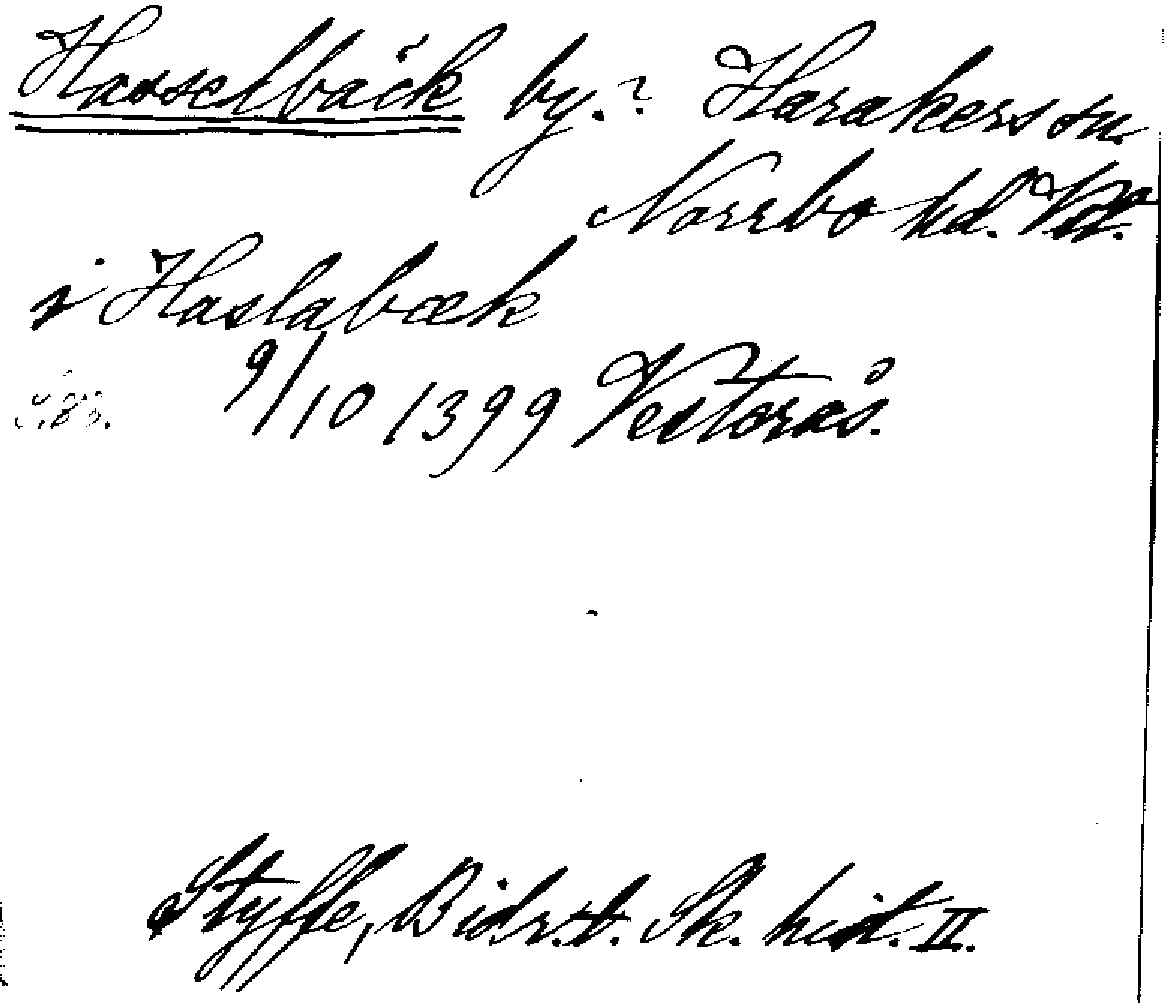 Hasselbäck by.? Harakers sn.
Norrbo hd. Vstm.
i Haslabæk
9/10 1399 Vesterås.
Styffe, Bidr. t. Sk. hist. II.